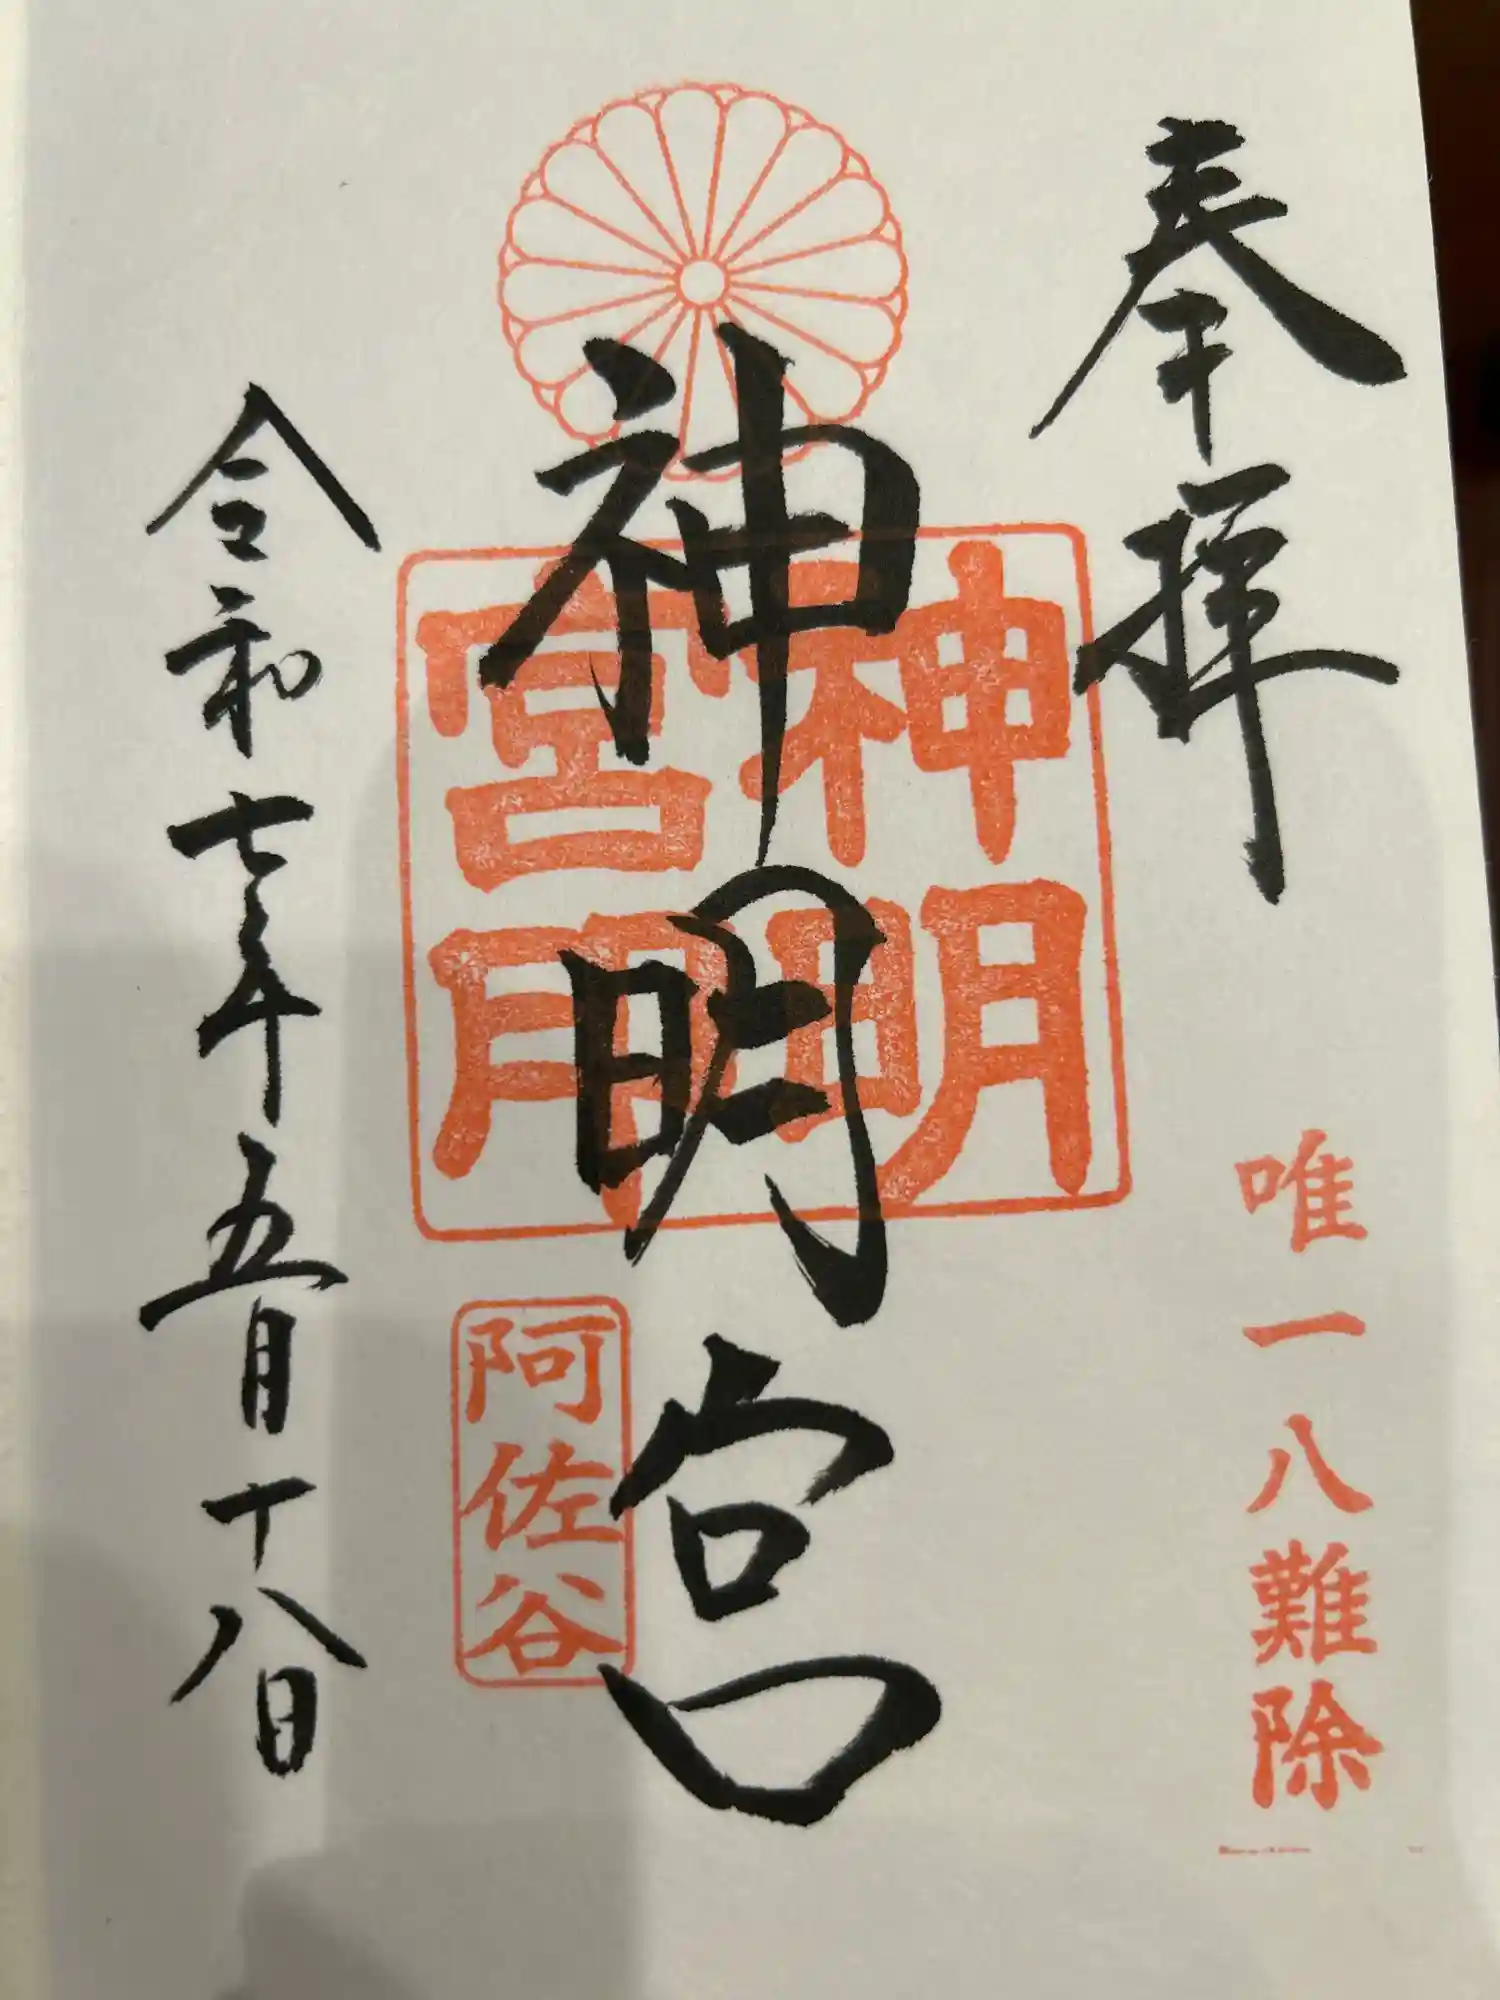 奉拝
唯一八難除
神明宮
神明宮印
阿佐谷
令和七年五月十八日